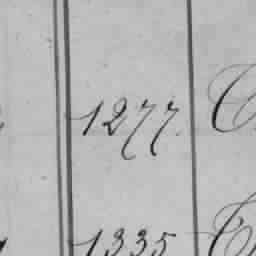 1277.
1335